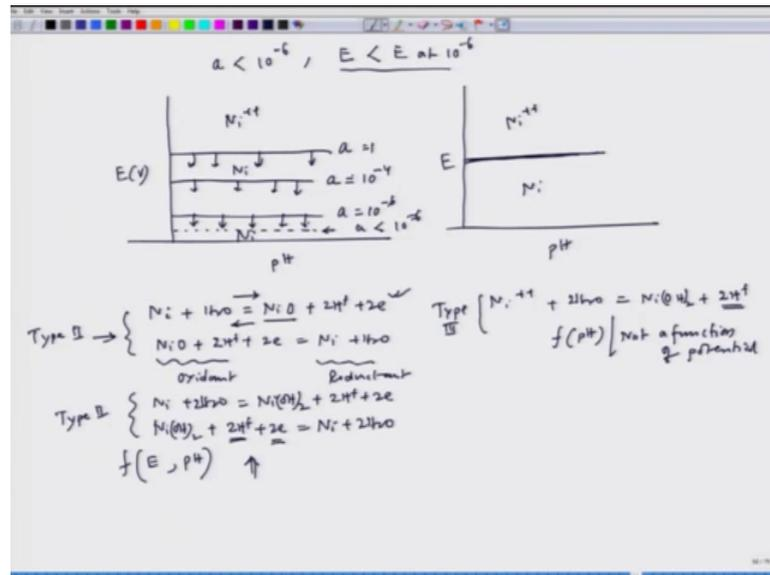 a < 10⁻⁶ , E < E at 10⁻⁶
Ni⁺⁺
a = 1
Ni
E(V)
a = 10⁻⁴
a = 10⁻⁶
a < 10⁻⁶
Ni
pH
Ni⁺⁺
E
Ni
pH
Type II → { Ni + H₂O = NiO + 2H⁺ + 2e
NiO + 2H⁺ + 2e = Ni + H₂O
Oxidant Reductant
Type II { Ni + 2H₂O = Ni(OH)₂ + 2H⁺ + 2e
Ni(OH)₂ + 2H⁺ + 2e = Ni + 2H₂O
f(E, pH) ↑
Type III { Ni⁺⁺ + 2H₂O = Ni(OH)₂ + 2H⁺
f(pH) | Not a function
of potential